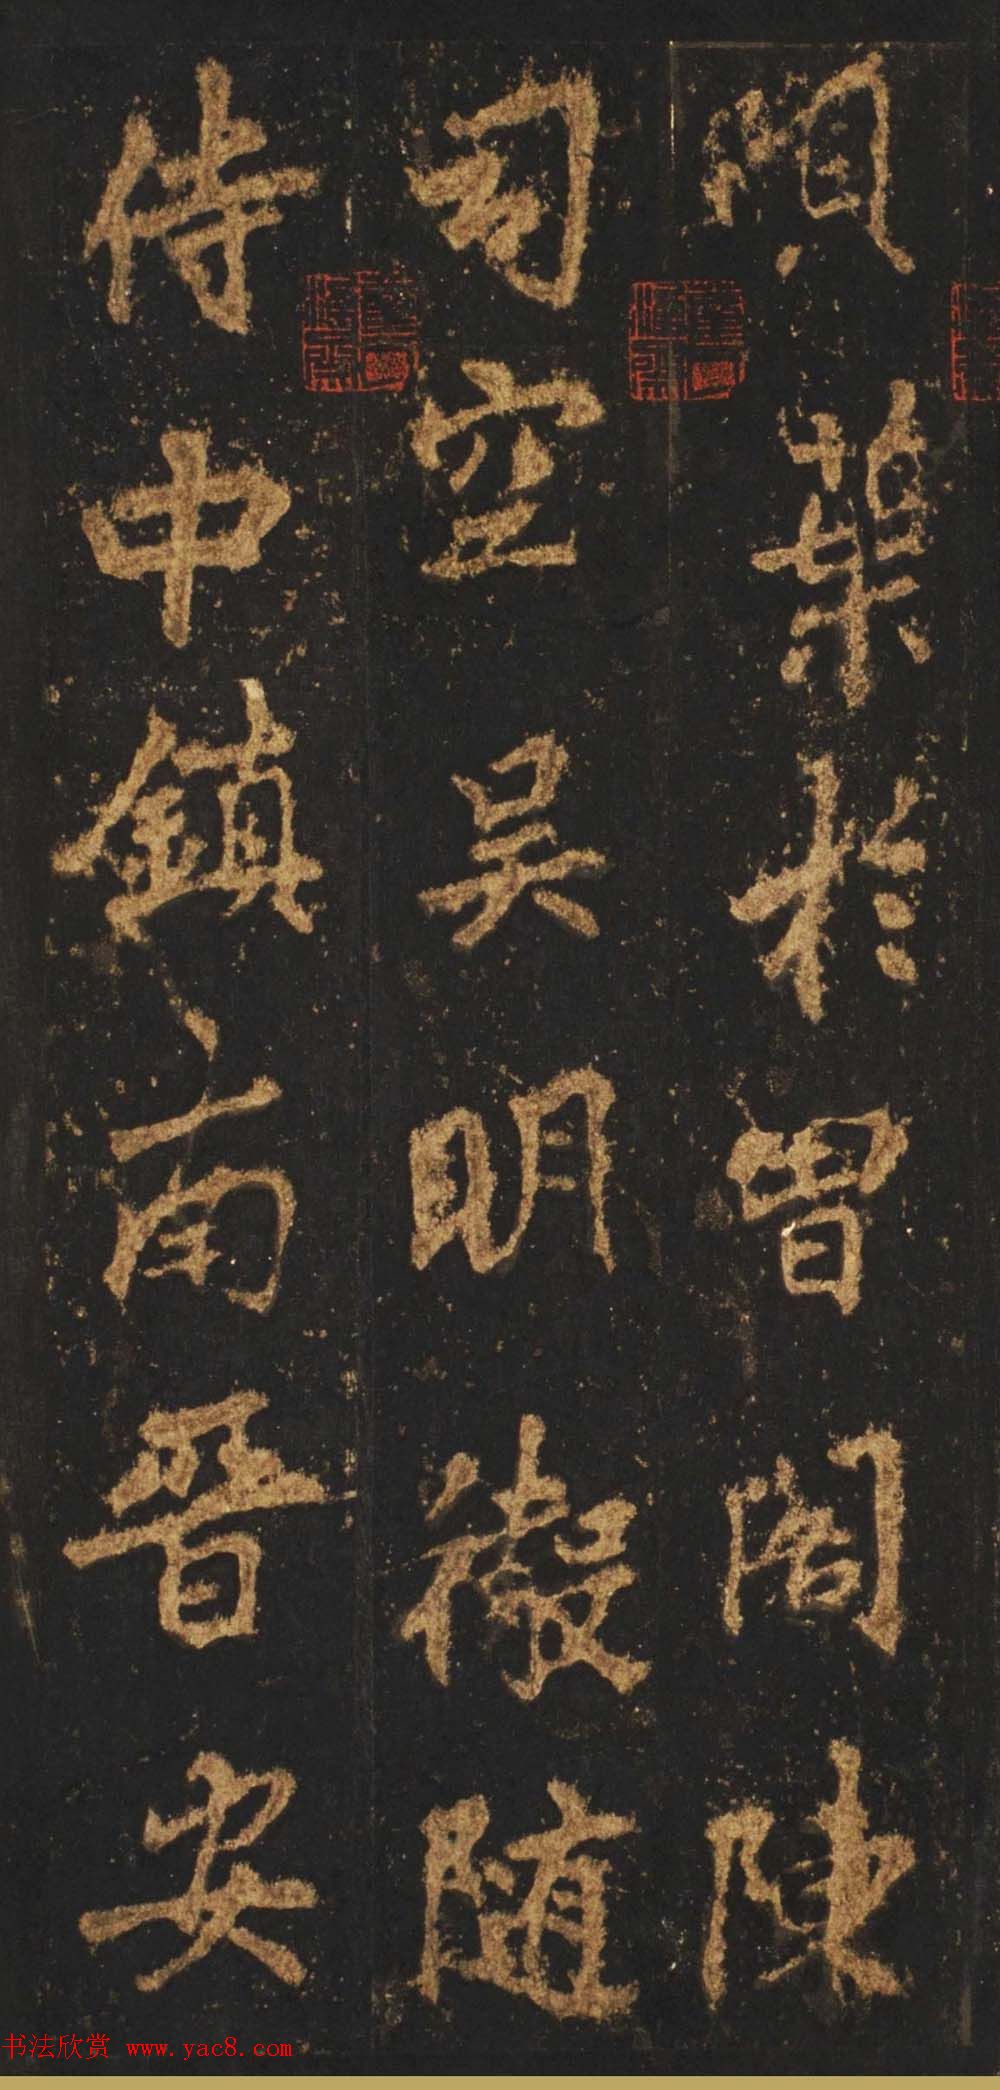 於曾閣陳
司空吴明徹隨
侍中鎮南晉安
书法欣赏 www.yac8.com